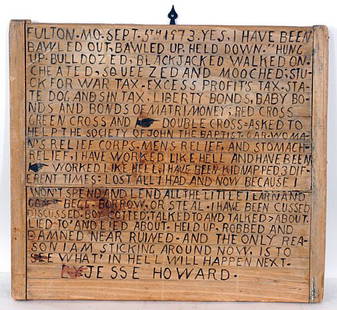 FULTON. MO. SEPT. 5TH 1973. YES. I HAVE BEEN
BAWLED OUT. BAWLED UP. HELD DOWN. HUNG
UP. BULLDOZED. BLACKJACKED. WALKED ON.
CHEATED, SQUEEZED AND MOOCHED. STU-
FOR WAR TAX. EXCESS PROFITS TAX. STA-
TE DOG AND SIN TAX. LIBERTY BONDS, BABY BO-
NDS AND BONDS OF MATRIMONEY. RED CROSS.
GREEN CROSS AND DOUBLE CROSS. ASKED TO
HELP THE SOCIETY OF JOHN THE BAPTIST.
N'S RELIEF CORPS. MEN'S RELIEF. AND STOMACH
RELIEF. I HAVE WORKED LIKE HELL AND HAVE BEEN
WORKED LIKE HELL. I HAVE BEEN KIDNAPPED 3 DIF-
ERENT TIMES. LOST ALL I HAD AND NOW BECAUSE I
WON'T SPEND AND LEND ALL THE LITTLE I EARN AND
GO BEG. BORROW. OR STEAL. I HAVE BEEN CUSSED
DISCUSSED. BOYCOTTED. TALKED TO AND TALKED ABOUT.
LIED TO AND LIED ABOUT. HELD UP. ROBBED AND
DAMNED NEAR RUINED. AND THE ONLY REA-
SON I AM STICKING AROUND NOW. IS TO
SEE WHAT IN HELL WILL HAPPEN NEXT.
JESSE HOWARD.